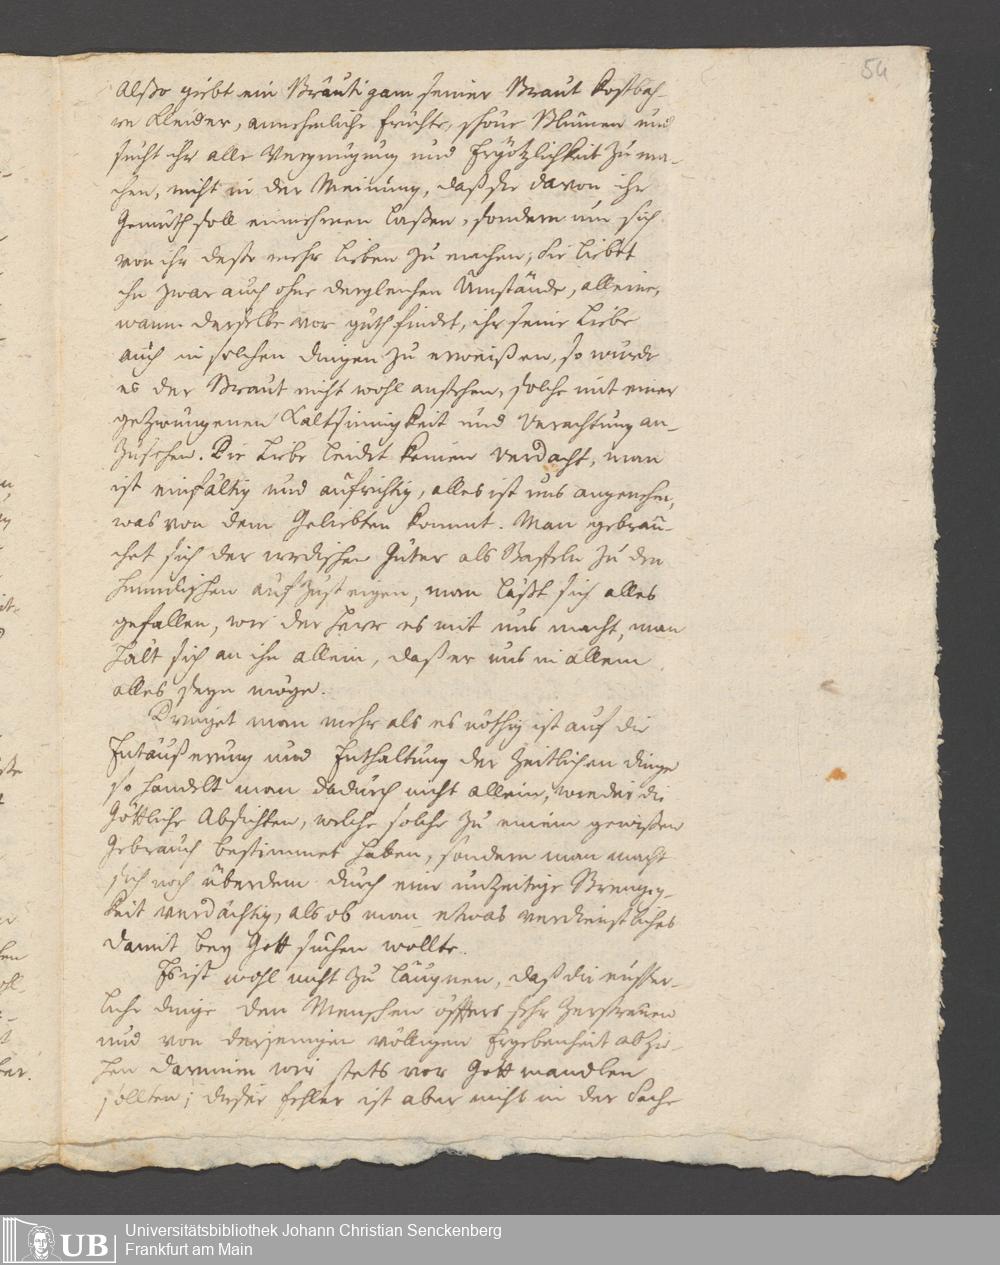 54
Alsso giebt ein Bräutigam seiner Braut kostbah
re Kleider, annehmliche Früchte, schöne Blumen und
sucht ihr alle Vergnügung und Ergötzlichkeit zu ma-
chen, nicht in der Meinung, daß sie davon ihr
Gemüth soll einnehmen laßen, sondern um sich
von ihr desto mehr lieben zu machen, Sie liebet
ihn zwar auch ohne dergleichen Umstände, alleine,
wann derselbe vor guth findet, ihr seine Liebe
auch in solchen Dingen zu erweißen, so würde
es der Braut nicht wohl anstehen, solche mit einer
gezwungenen Kaltsinnigkeit und Verachtung an-
zusehen. Die Liebe leidet keinen Verdacht, man
ist einfältig und aufrichtig, alles ist uns angenehm,
was von dem Geliebten kommt. Man gebrau-
chet sich der irrdischen Güter als Staffeln zu den
himmlischen aufzusteigen, man läßt sich alles
gefallen, wie der Herr es mit uns macht, man
hält sich an ihn allein, daß er uns in allem
alles seyn möge.
Dringet man mehr als es nöthig ist auf die
Entäußerung und Enthaltung der zeitlichen Dinge
so handelt man dadurch nicht allein, wieder die
Göttliche Absichten, welche solche zu einem gewißen
Gebrauch bestimmet haben, sondern man macht
sich noch überdem durch eine unzeitige Strengig-
keit verdächtig, als ob man etwas verdienstliches
damit bey Gott suchen wollte.
Es ist wohl nicht zu läugnen, daß die eusser-
liche Dinge den Menschen öffters sehr zerstreuen
und von derjenigen völligen Ergebenheit abzie-
hen darinnen wir stets vor Gott wandlen
sollten; dieser Fehler ist aber nicht in der Sache
UB
Universitätsbibliothek Johann Christian Senckenberg
Frankfurt am Main